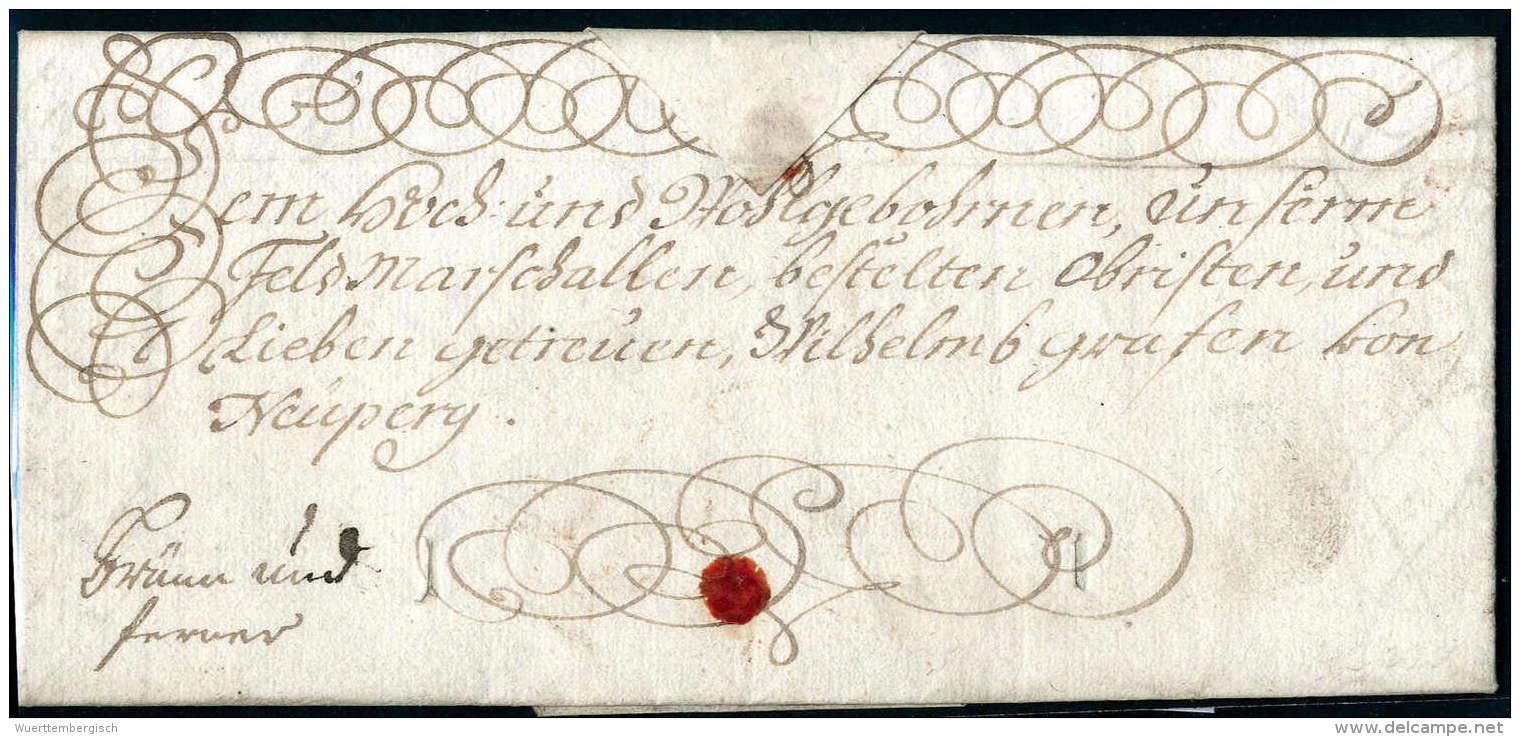 Dem Hoch: und Wohlgebohrnen, Unserm
FeldMarschallen, bestelten Obristen, und
Lieben getreuen, Wilhelmb grafen von
Neüperg.
Brünn und
ferner
Wuerttembergisch
www.delcampe.net